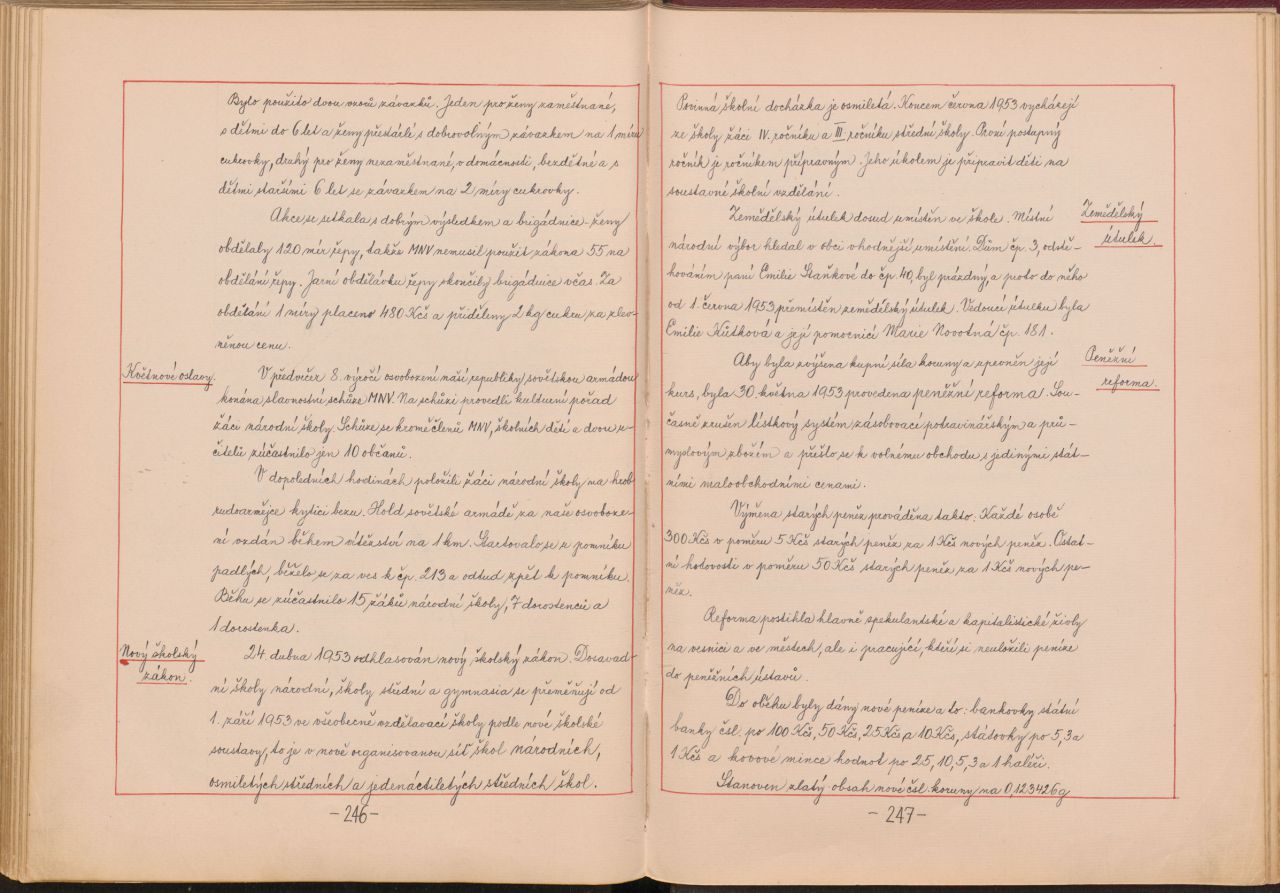 Bylo použito dvou vzorů závazků. Jeden pro ženy zaměstnané,
s dětmi do 6 let a ženy přestárlé s dobrovolným závazkem na 1 míru
cukrovky, druhý pro ženy nezaměstnané, v domácnosti, bezdětné a s
dětmi staršími 6 let se závazkem na 2 míry cukrovky.
Akce se setkala s dobrým výsledkem a brigádnice-ženy
obdělaly 120 mír řepy, takže MNV nemusil použít zákona 55 na
obdělání řepy. Jarní obdělávku řepy skončily brigádnice včas. Za
obdělání 1 míry placeno 480 Kčs a příděleny 2 kg cukru za zlev-
něnou cenu.
Květnové oslavy.
V předvečer 8. výročí osvobození naší republiky sovětskou armádou
konána slavnostní schůze MNV. Na schůzi provedli kulturní pořad
žáci národní školy. Schůze se kromě členů MNV, školních dětí a dvou u-
čitelů zúčastnilo jen 10 občanů.
V dopoledních hodinách položili žáci národní školy na hrob
rudoarmějce kytici bezu. Hold sovětské armádě za naše osvoboze-
ní vzdán během vítězství na 1 km. Startovalo se u pomníku
padlých, běželo se za ves k čp. 213 a odtud zpět k pomníku.
Běhu se zúčastnilo 15 žáků národní školy, 7 dorostenců a
1 dorostenka.
Nový školský
zákon.
24. dubna 1953 odhlasován nový školský zákon. Dosavad-
ní školy národní, školy střední a gymnasia se přeměňují od
1. září 1953 ve všeobecně vzdělavací školy podle nové školské
soustavy, to je v nově organisovanou síť škol národních,
osmiletých středních a jedenáctiletých středních škol.
-246-
Povinná školní docházka je osmiletá. Koncem června 1953 vycházejí
ze školy žáci IV. ročníku a III. ročníku střední školy. První postupný
ročník je ročníkem přípravným. Jeho úkolem je připravit děti na
soustavné školní vzdělání.
Zemědělský
útulek.
Zemědělský útulek dosud umístěn ve škole. Místní
národní výbor hledal v obci vhodnější umístění. Dům čp. 3, odstě-
hováním paní Emilie Staňkové do čp. 40, byl prázdný, a proto do něho
od 1. června 1953 přemístěn zemědělský útulek. Vedoucí útulku byla
Emilie Kůtková a její pomocnicí Marie Novotná čp. 181.
Peněžní
reforma.
Aby byla zvýšena kupní síla koruny a upevněn její
kurs, byla 30. května 1953 provedena peněžní reforma. Sou-
časně zrušen lístkový systém zásobovací potravinářským a prů-
myslovým zbožím a přešlo se k volnému obchodu s jedinými stát-
ními maloobchodními cenami.
Výměna starých peněz prováděna takto: Každé osobě
300 Kčs v poměru 5 Kčs starých peněz za 1 Kčs nových peněz. Ostat-
ní hotovosti v poměru 50 Kčs starých peněz za 1 Kčs nových pe-
něz.
Reforma postihla hlavně spekulantské a kapitalistické živly
na vesnici a ve městech, ale i pracující, kteří si neuložili peníze
do peněžních ústavů.
Do oběhu byly dány nové peníze a to: bankovky státní
banky čsl. po 100 Kčs, 50 Kčs, 25 Kčs a 10 Kčs, státovky po 5, 3 a
1 Kčs a kovové mince hodnot po 25, 10, 5, 3 a 1 haléři.
Stanoven zlatý obsah nové čsl. koruny na 0,123426g
-247-